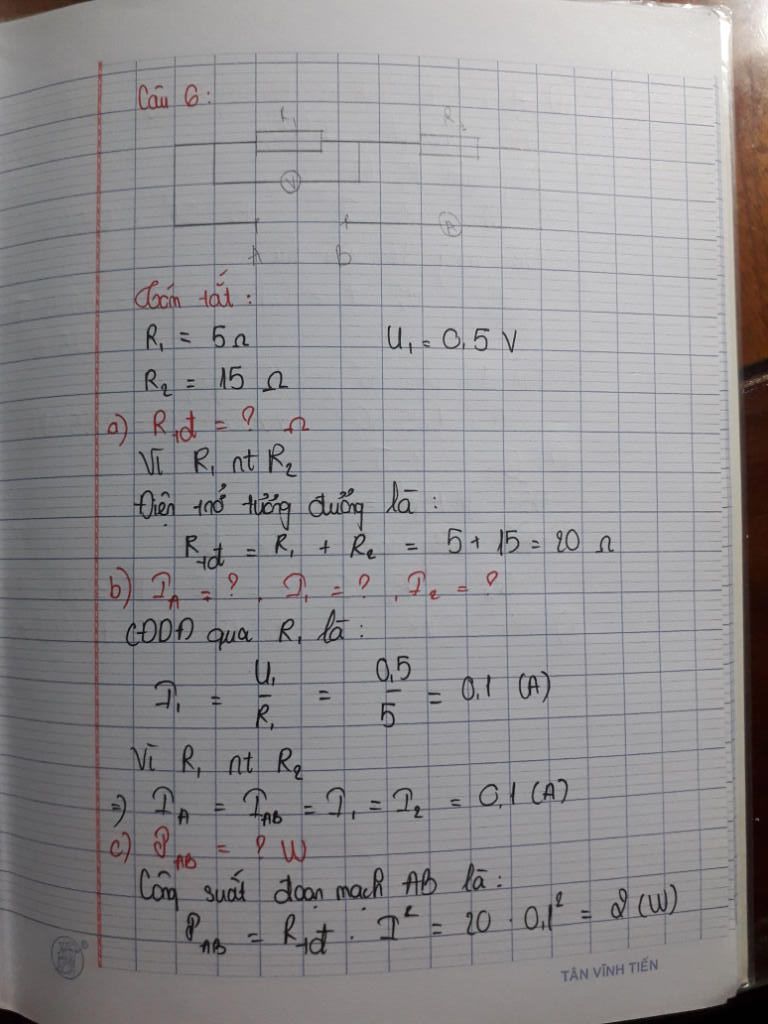 Câu 6:
R₁ R₂
V
A B A
Tóm tắt:
R₁ = 5 Ω U₁ = 0,5 V
R₂ = 15 Ω
a) Rtđ = ? Ω
Vì R₁ nt R₂
Điện trở tương đương là:
Rtđ = R₁ + R₂ = 5 + 15 = 20 Ω
b) I_A = ?, I₁ = ?, I₂ = ?
CĐDĐ qua R₁ là:
I₁ = U₁/R₁ = 0,5/5 = 0,1 (A)
Vì R₁ nt R₂
=) I_A = I_AB = I₁ = I₂ = 0,1 (A)
c) P_AB = ? W
Công suất đoạn mạch AB là:
P_AB = Rtđ . I² = 20 . 0,1² = 2 (W)
TÂN VĨNH TIẾN